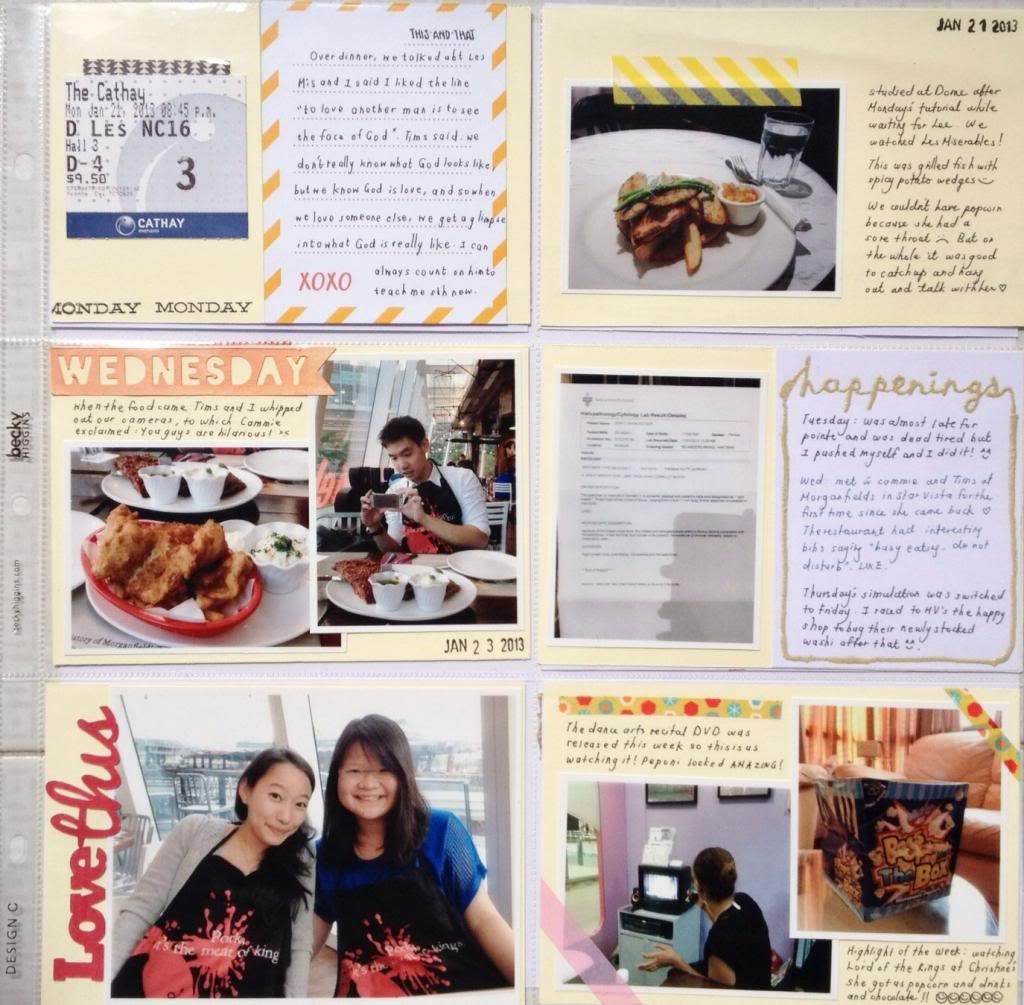 The Cathay
Mon Jan 21, 2013 08:45 p.m.
D LES NC16
Hall 3
D-4
$9.50
3
CATHAY
MONDAY MONDAY
THIS AND THAT
Over dinner, we talked abt Les
Mis and I said I liked the line
"to love another man is to see
the face of God". Tims said, we
don't really know what God looks like,
but we know God is love, and so when
we love someone else, we get a glimpse
into what God is really like. I can
always count on him to
teach me sth new.
XOXO
JAN 21 2013
studied at Dome after
Monday's tutorial while
waiting for Lee. We
watched Les Miserables!
This was grilled fish with
spicy potato wedges
We couldn't have popcorn
because she had a
sore throat But on
the whole it was good
to catch up and hang
out and talk with her
WEDNESDAY
when the food came Tims and I whipped
out our cameras, to which Cammie
exclaimed: You guys are hilarious!
story of Morganfield's
JAN 23 2013
Histopathology/Cytology Lab Result (Details)
happenings
Tuesday: was almost late for
pointe and was dead tired but
I pushed myself and I did it! ^^
Wed: met cammie and Tims at
Morganfields in Star Vista for the
first time since she came back
The restaurant had interesting
bibs saying "busy eating. do not
disturb". LIKE.
Thursday's simulation was switched
to friday. I raced to HV's the happy
shop to bug their newly stocked
washi after that
Love this
it's the meat of king
it's the
kings
The dance arts recital DVD was
released this week so this is us
watching it! Peponi looked AMAZING!
Pop
The BOX
Highlight of the week: watching
Lord of the Rings at Christine's
she got us popcorn and drinks
and chocolate!!
becky
HIGGINS
beckyhiggins.com
DESIGN C